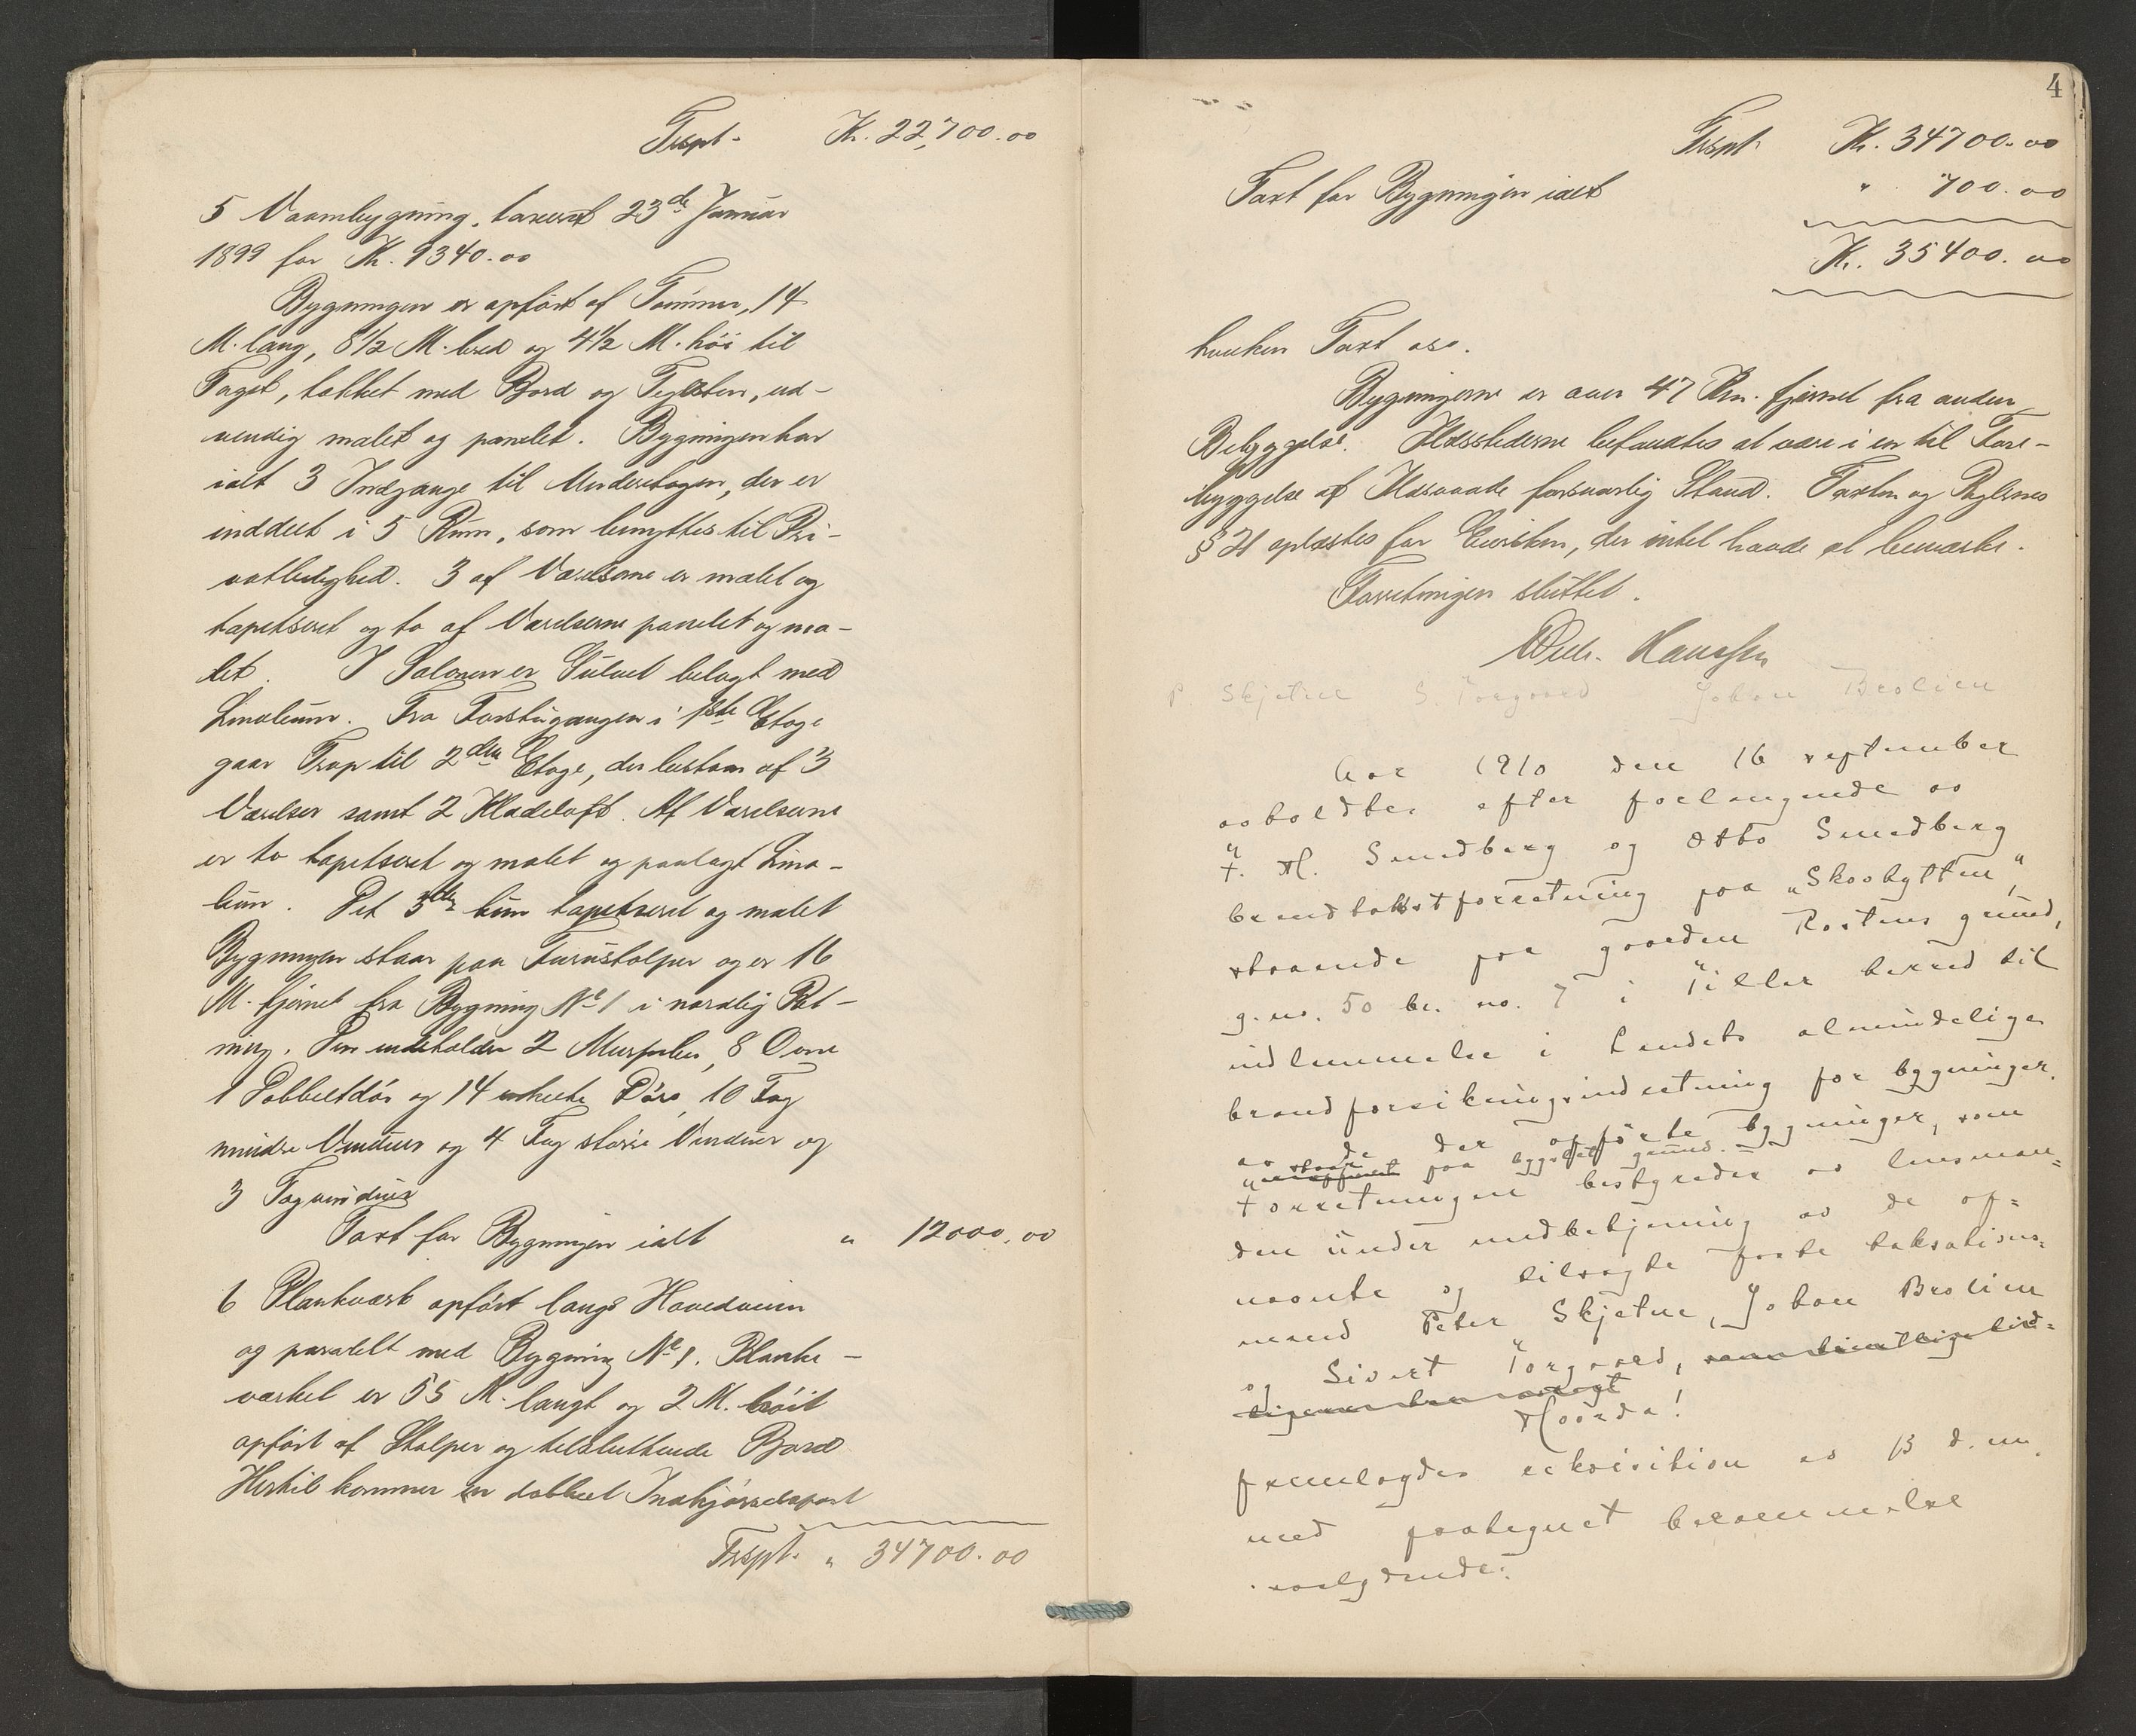 Trspt. Kr. 22,700.00
5 Vaambygning, taxeret 23de Januar
1899 for Kr. 9340.00
Bygningen er opført af Tømmer, 14
M. lang, 8½ M. bred og 4½ M. høi til
Taget, tækket med Bord og Teglsten, ud-
vendig malet og panelet. Bygningen har
ialt 3 Indgange til Underetagen, der er
inddelt i 5 Rum, som benyttes til Pri-
vatleilighed. 3 af Værelserne er malet og
tapetseret og to af Værelserne panelet og ma-
let. I Salonen er Gulvet belagt med
Linoleum. Fra Forstugangen i 1ste Etage
gaar Trap til 2den Etage, der bestaar af 3
Værelser samt 2 Klædeloft. Af Værelserne
er to tapetseret og malet og paalagt Lino-
leum. Det 3die kun tapetseret og malet
Bygningen staar paa Furustolper og er 16
M. fjernet fra Bygning No 1 i nordlig Ret-
ning. Den indeholder 2 Murpiber, 8 Ovne
1 Dobbeltdør og 14 enkelte Døre, 10 Fag
mindre Vinduer og 4 Fag større Vinduer og
3 Tagvinduer
Taxt for Bygningen ialt " 12000.00
6 Plankværk opført langs Hovedveien
og paralelt med Bygning No 1. Planke-
værket er 55 M. langt og 2 M. høit
opført af Stolper og tilsluttende Bord
Hertil kommer en dobbelt Indkjørselsport
Trspt. " 34700.00
4
Trspt. Kr. 34700.00
Taxt for Bygningen ialt " 700.00
Kr. 35400.00
hvilken Taxt osv.
Bygningerne er over 47 Km. fjernet fra anden
Bebyggelse. Ildsstederne befandtes at være i en til Fore-
byggelse af Ildsvaade forsvarlig Stand. Taxten og Reglernes
§ 21 oplæstes for Eieren, der intet havde at bemærke.
Forretningen sluttet.
Wilh. Hanssen
P Skjetne S Torgaard Johan Brølien
Aar 1910 den 16 september
avholdtes efter forlangende av
F. M. Smedberg og Otto Smedberg
brandtakstforretning paa „Skovhytten",
staaende paa gaarden Rostens grund,
g. no. 50 br. no. 7 i Tiller herred til
indlemmelse i Landets almindelige
brandforsikringsindretning for bygninger,
av de der opførte bygninger, som
staar paa bygslet grund.
Forretningen bestyredes av lensman-
den under medbetjening av de op-
nævnte og tilsagte faste taksations-
mænd Peter Skjetne, Johan Brølien
og Sivert Torgaard,
Hvorda!
fremlagdes rekvisition av 13 d. m.
med paategnet berammelse
saalydende: